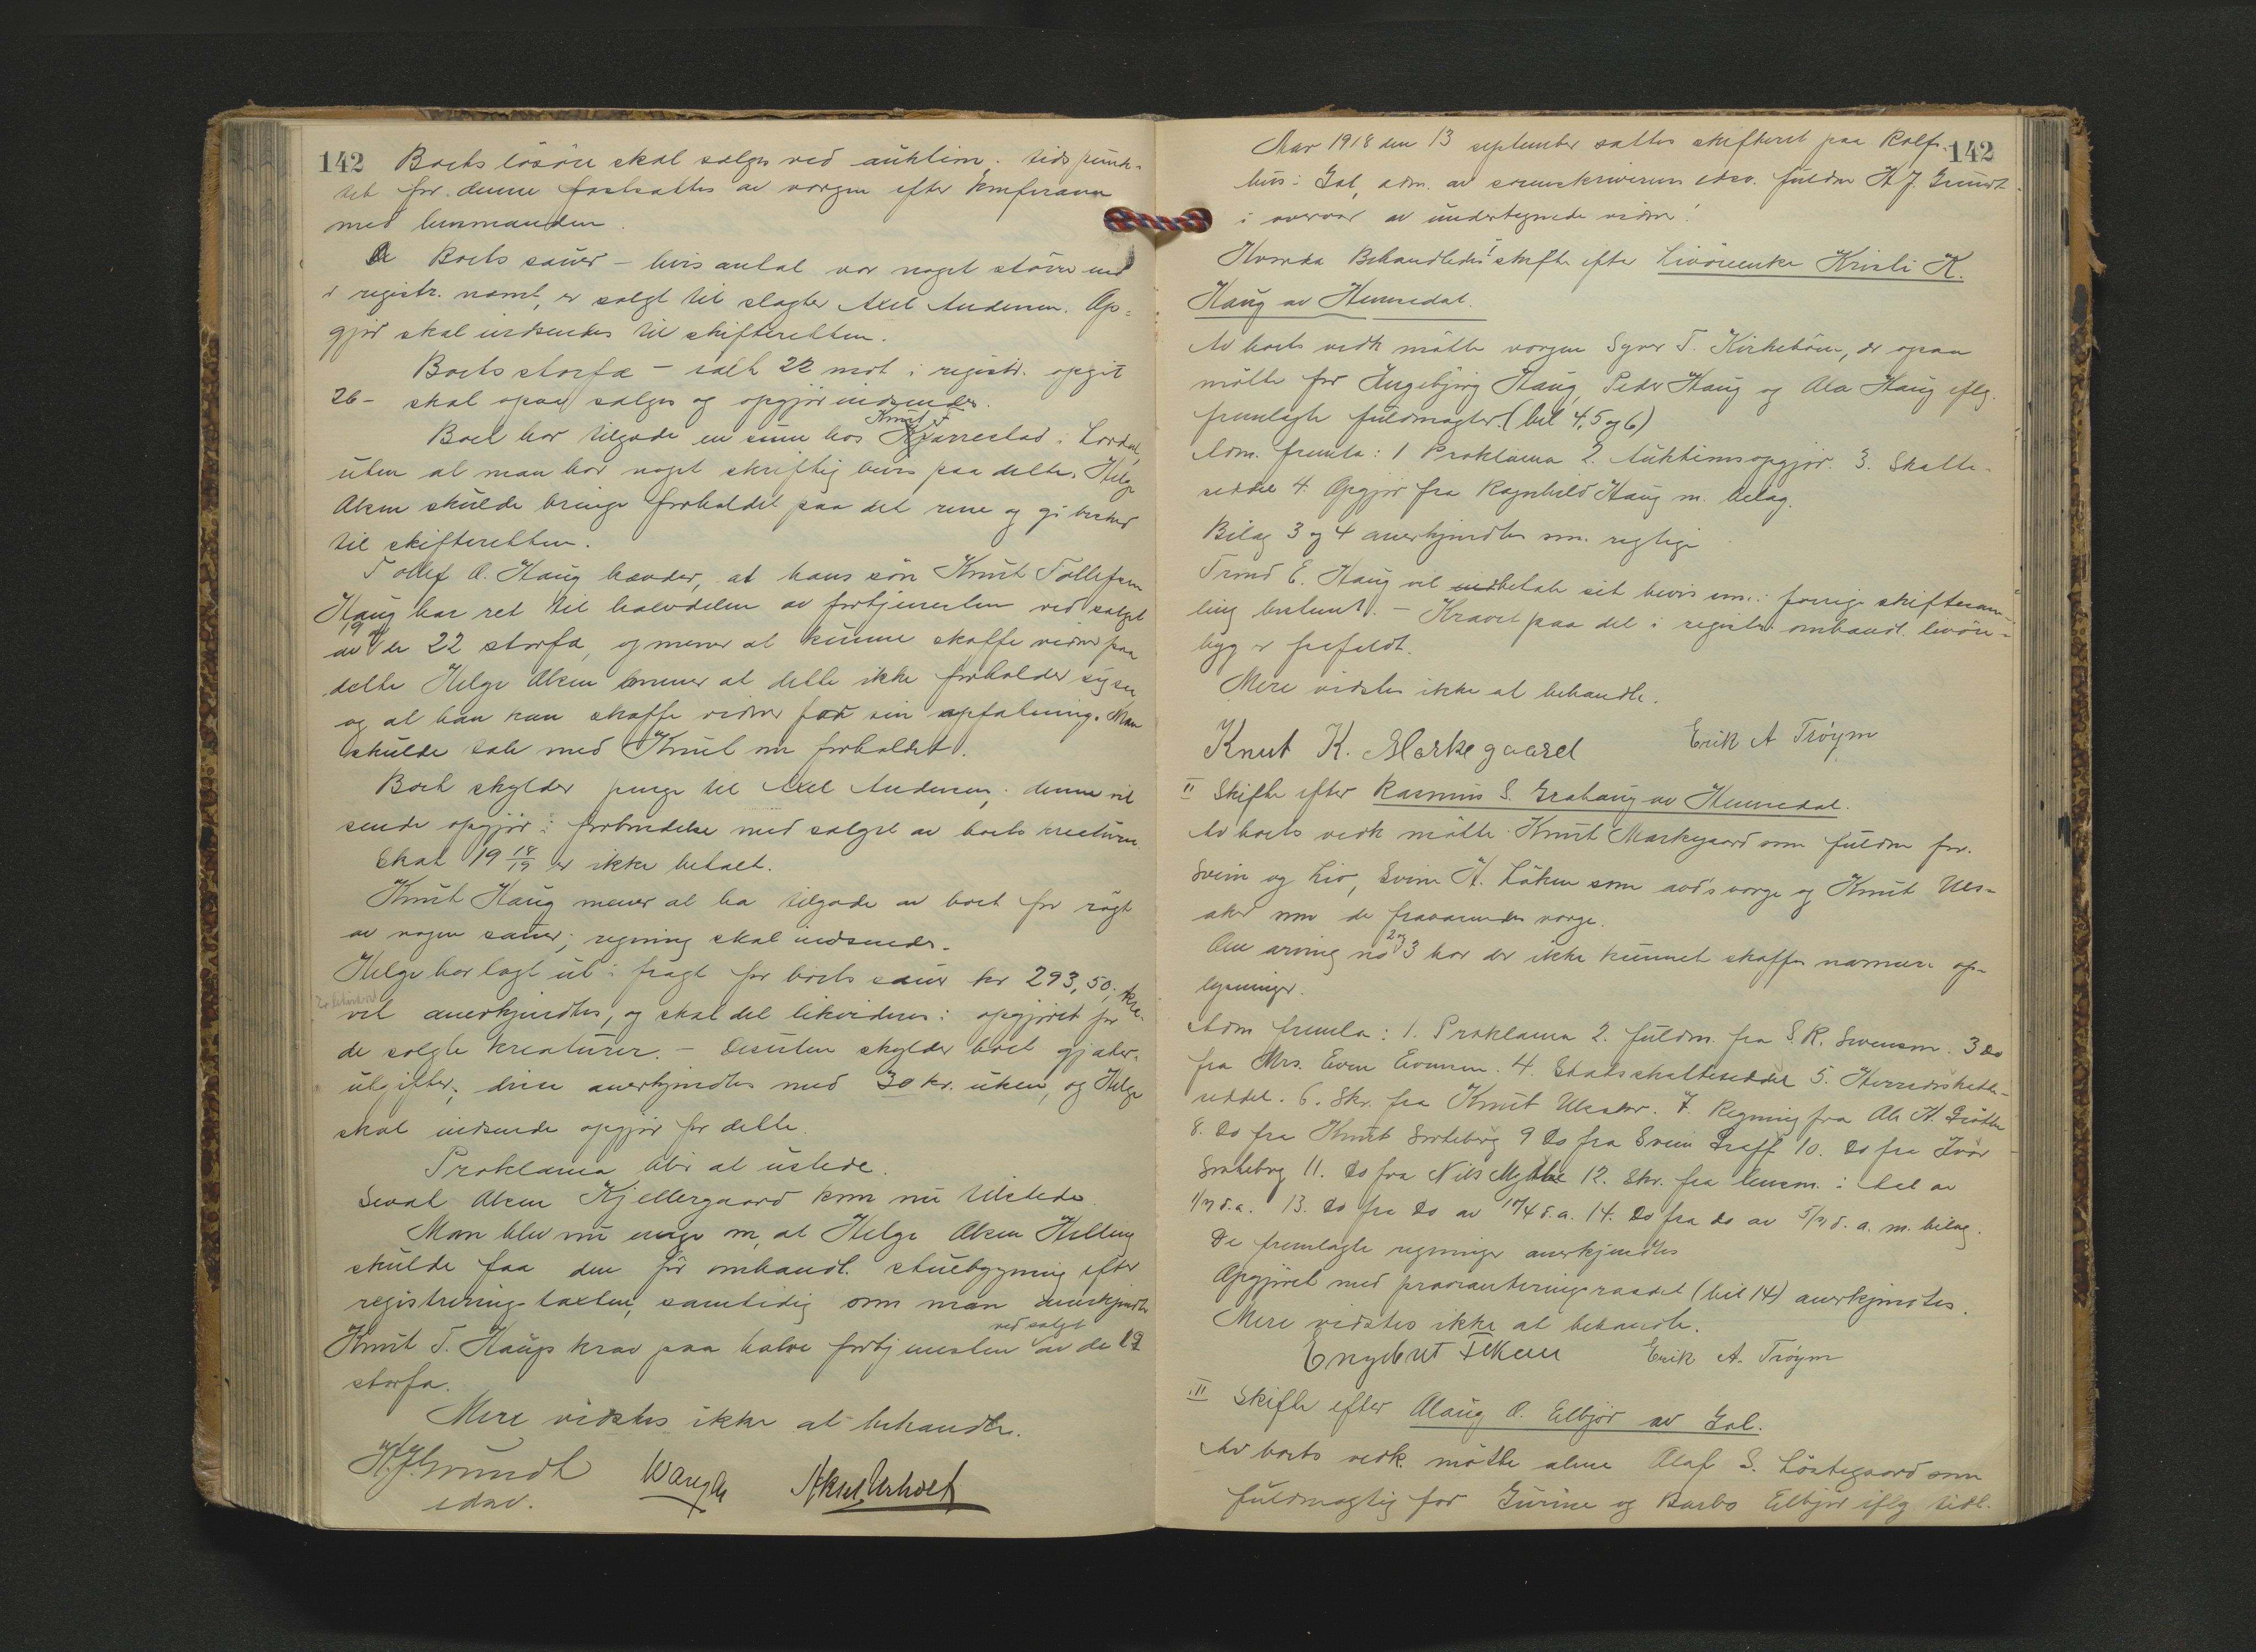 142
Boets løsøre skal selges ved auktion. tidspunk-
tet for denne fastsættes av vergen efter konferanse
med lensmanden.
Boets sauer – hvis antal var noget større end
i registr. nævnt, er solgt til slagter Axel Andersen. Op-
gjør skal indsendes til skifteretten.
Boets storfæ – ialt 22 mot i registr. opgit
26 – skal ogsaa sælges og opgjør indsendes.
Knut T.
Boet har tilgode en sum hos Harrestad i Lærdal,
uten at man har noget skriftlig bevis paa dette. Helge
Olsen skulde bringe forholdet paa det rene og gi besked
til skifteretten.
Tollef O. Haug hævder, at hans søn Knut Tollefsen
Haug har ret til halvdelen av fortjenesten ved salget
19 av
av de 22 storfæ, og mener at kunne skaffe vidner paa
dette Helge Olsen mener at dette ikke forholder sig saa
og at han kan skaffe vidner for sin opfatning. Man
skulde tale med Knut om forholdet.
Boet skylder penge til Axel Andersen; denne vil
sende opgjør i forbindelse med salget av boets kreaturer
Skat 19 18/19 er ikke betalt.
Knut Haug mener at ha tilgode av boet for røgt
av nogen sauer; regning skal indsendes.
Helge har lagt ut i fragt for boets sauer kr 293,50; kra-
vet anerkjendtes, og skal det likvideres i opgjøret for
de solgte kreaturer. – Desuten skylder boet gjæter-
utgifter; disse anerkjendtes med 30 kr. uken, og Helge
skal indsende opgjør for dette.
Proklama blir at utstede.
Sevat Olsen Kjellergaard kom nu tilstede
Man blev nu enige om, at Helge Olsen Helling
skulde faa den før omhandl. stuebygning efter
registreringstaxten, samtidig som man anerkjendte
ved salget
Knut T. Haugs krav paa halve fortjenesten av de 19
storfæ.
Mere vidstes ikke at behandle.
H.J. Grundt
edsv.
142
Aar 1918 den 13 september sattes skifteret paa Rolfs-
hus i Gol, adm. av sorenskriverens edsv. fuldm H J. Grundt
i overvær av undertegnede vidner:
Hvorda Behandledes: I skifte efter Livørenke Kristi K.
Haug av Hemsedal.
Av boets vedk møtte vergen Syver T. Kirkebøen, der ogsaa
møtte for Ingebjørg Haug, Peder Haug og Ola Haug iflg.
fremlagte fuldmagter. (bil 4, 5 og 6)
Adm. fremla: 1 Proklama 2. Auktionsopgjør. 3. Skatte-
seddel 4. Opgjør fra Ragnhild Haug m. bilag.
Bilag 3 og 4 anerkjendtes som rigtige
Trond E. Haug vil indbetale sit bevis som i forrige skiftesam-
ling bestemt. – Kravet paa det i registr. omhandl. livøre-
byg er frafaldt.
Mere vidstes ikke at behandle.
Knut K. Markegaard Erik A Trøym
II Skifte efter Rasmus S. Grøhaug av Hemsedal.
Av boets vedk møtte Knut Markegaard som fuldm for
Svein og Liv, Svein H. Løken som avd's verge og Knut Uls-
aker som de fraværendes verge.
2 og
Om arving no 3 har der ikke kunnet skaffes nærmere op-
lysninger.
Adm fremla: 1. Proklama 2. fuldm. fra S. R. Swenson. 3 Do
fra Mrs. Even Evensen. 4. Statsskatteseddel 5. Herredsskatte-
seddel. 6. Skr. fra Knut Ulsaker. 7. Regning fra Ole H. Grøtte
8. Do fra Knut Snoteberg 9 Do fra Svein Greff 10. Do fra Ivar
Snoteberg 11. Do fra Nils Mythe 12. Skr. fra lensm. i Aal av
1/7 d.a. 13. Do fra Do av 17/4 d.a. 14. Do fra do av 5/7 d. a. m. bilag.
De fremlagte regninger anerkjendtes
Opgjøret med provianteringsraadet (bil 14) anerkjendtes.
Mere vidstes ikke at behandle.
Engebret Erik A. Trøym
II Skifte efter Olaug O. Elbjør av Gol.
Av boets vedk. møtte alene Olaf S. Løstegaard som
fuldmægtig for Gurine og Barbo Elbjør iflg tidl.